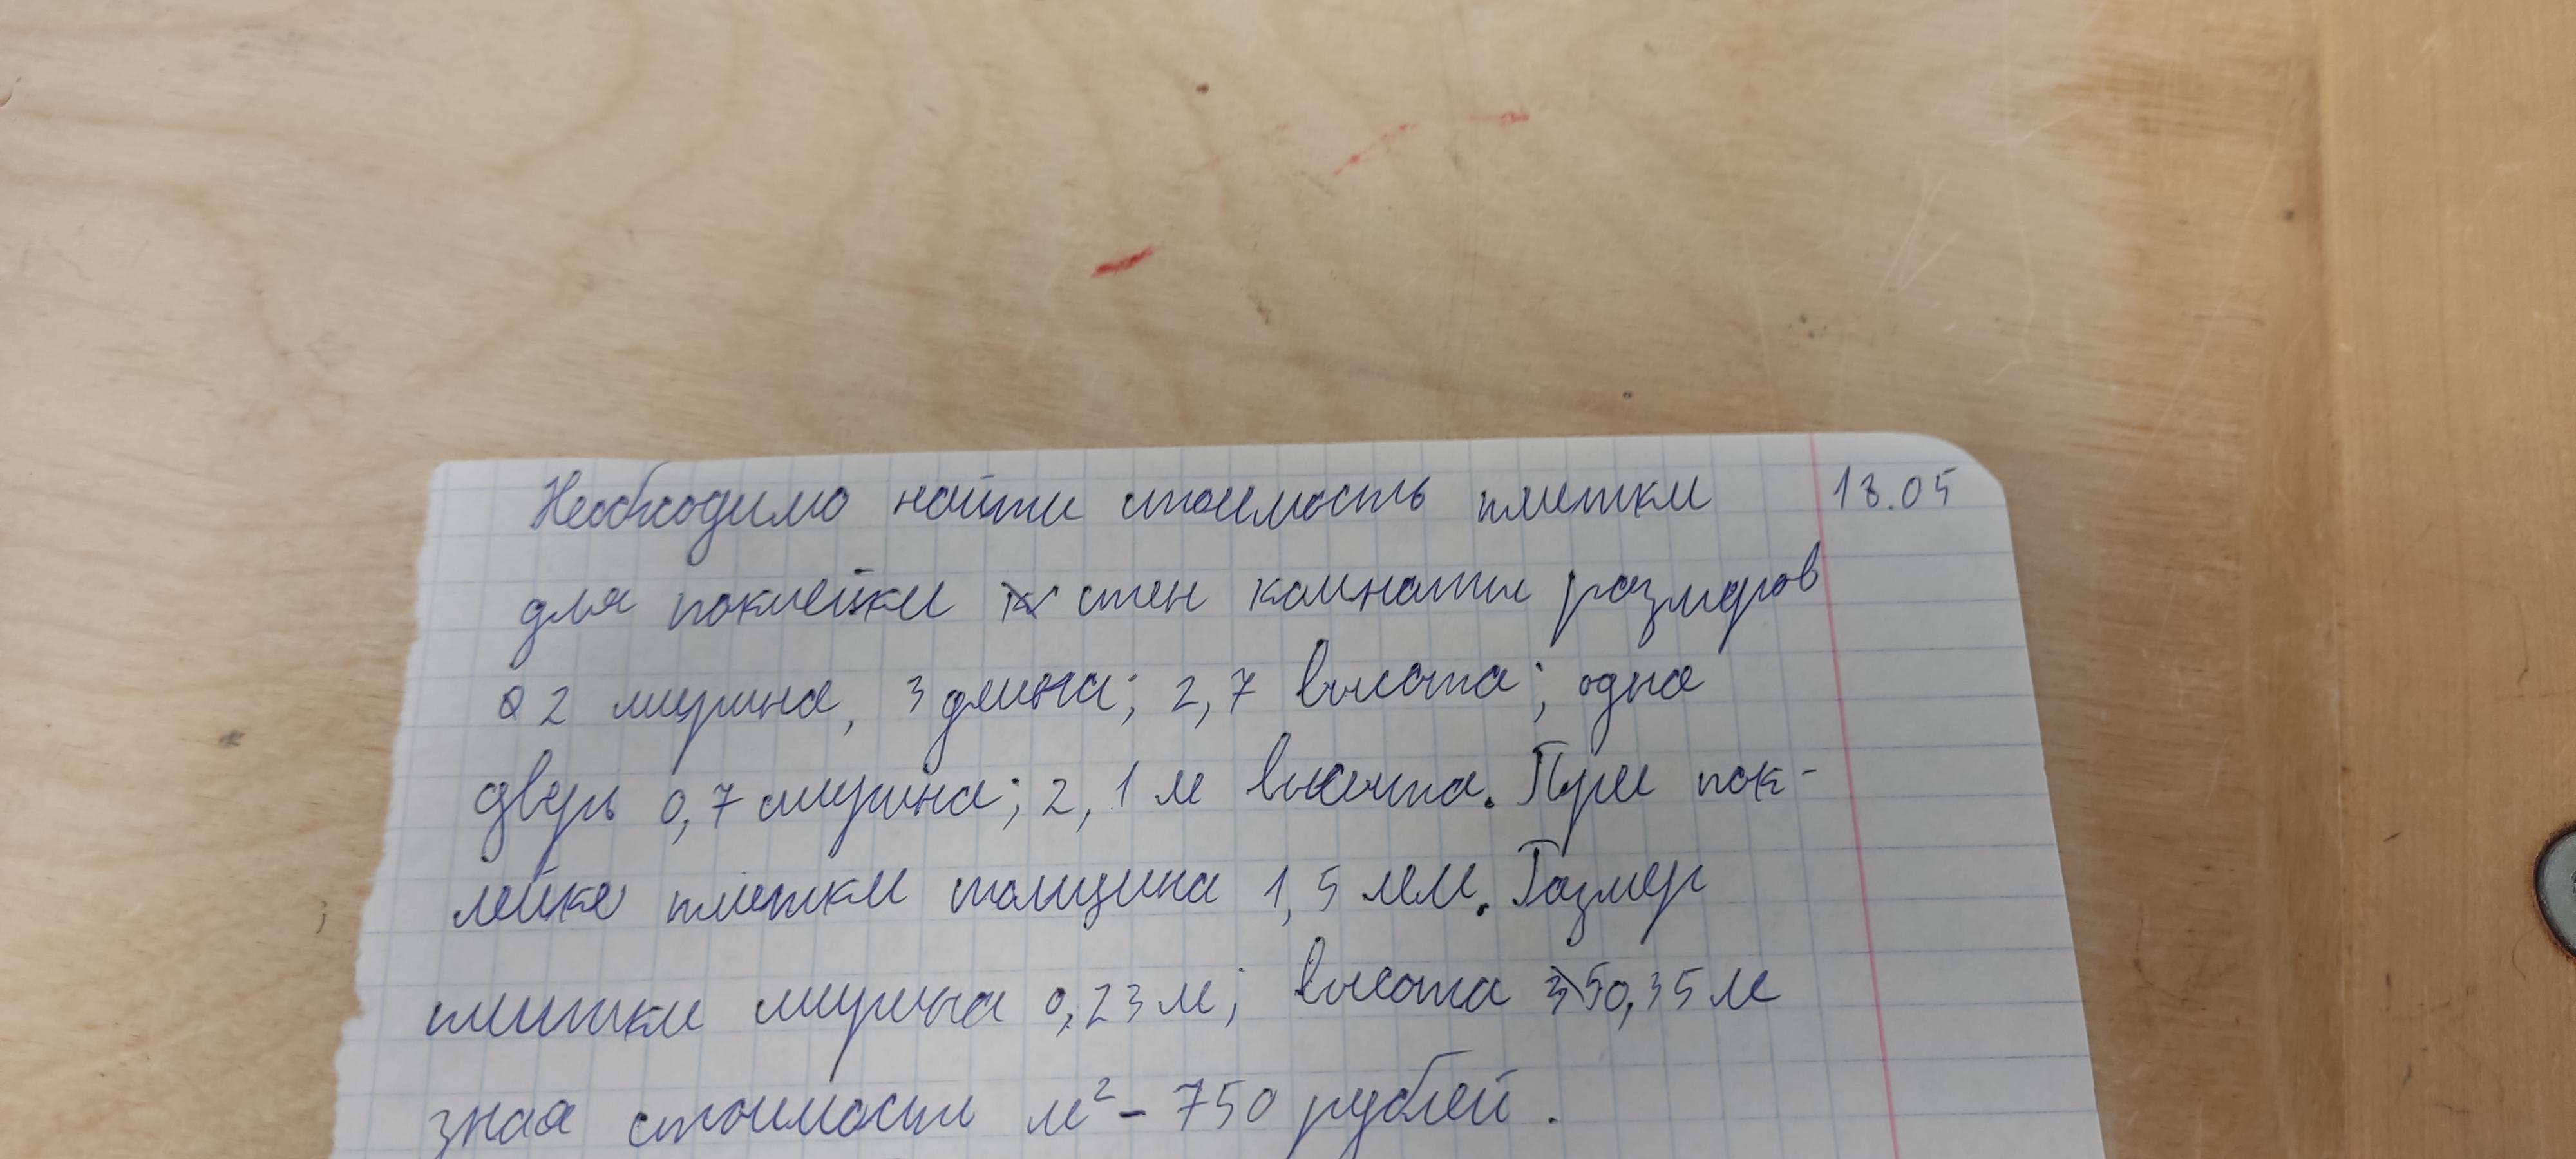 Необходимо найти стоимость плитки 18.05
для поклейки стен комнаты размеров
2 ширина, 3 длина; 2,7 высота; одна
дверь 0,7 ширина; 2,1 м высота. При пок-
лейке плитки толщина 1,5 мм. Размер
плитки ширина 0,23 м; высота 0,35 м
зная стоимость м² - 750 рублей.